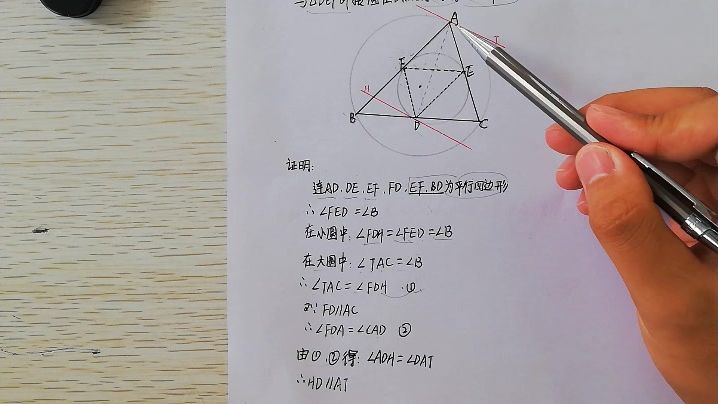 A
T
F
E
H
B
D
C
证明:
连AD、DE、EF、FD、EF、BD为平行四边形
∴∠FED=∠B
在小圆中:∠FDH=∠FED=∠B
在大圆中:∠TAC=∠B
∴∠TAC=∠FDH ①
又∵FD//AC
∴∠FDA=∠CAD ②
由①、②得:∠ADH=∠DAT
∴HD//AT